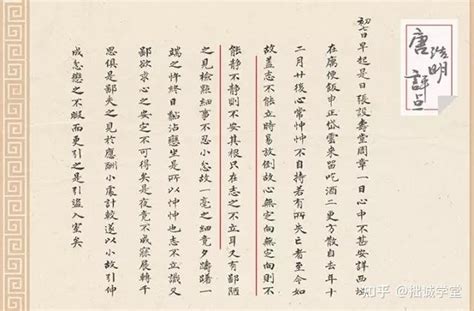 唐浩明
评点
初七日早起是日張設壽堂周章一日心中不甚安詳西垣
在寓便飯申正岱雲來留吃酒二更方散自去年十
二月廿後心常忡忡不自持若有所失亡者至今如
故蓋志不能立時易放倒故心無定向無定向則不
能靜不靜則不安其根只在志之不立耳又有鄙陋
之見檢點細事不忍小忿故一毫之細竟夕躊躇一
端之忤終日黏戀坐是所以忡忡也志不立識又
鄙欲求心之安定不可得矣是夜竟不成寐展轉千
思俱是鄙夫之見於應酬小處計較遂以小故引伸
成忿懲之不暇而更引之是引盜入室矣
知乎 @拙诚学堂